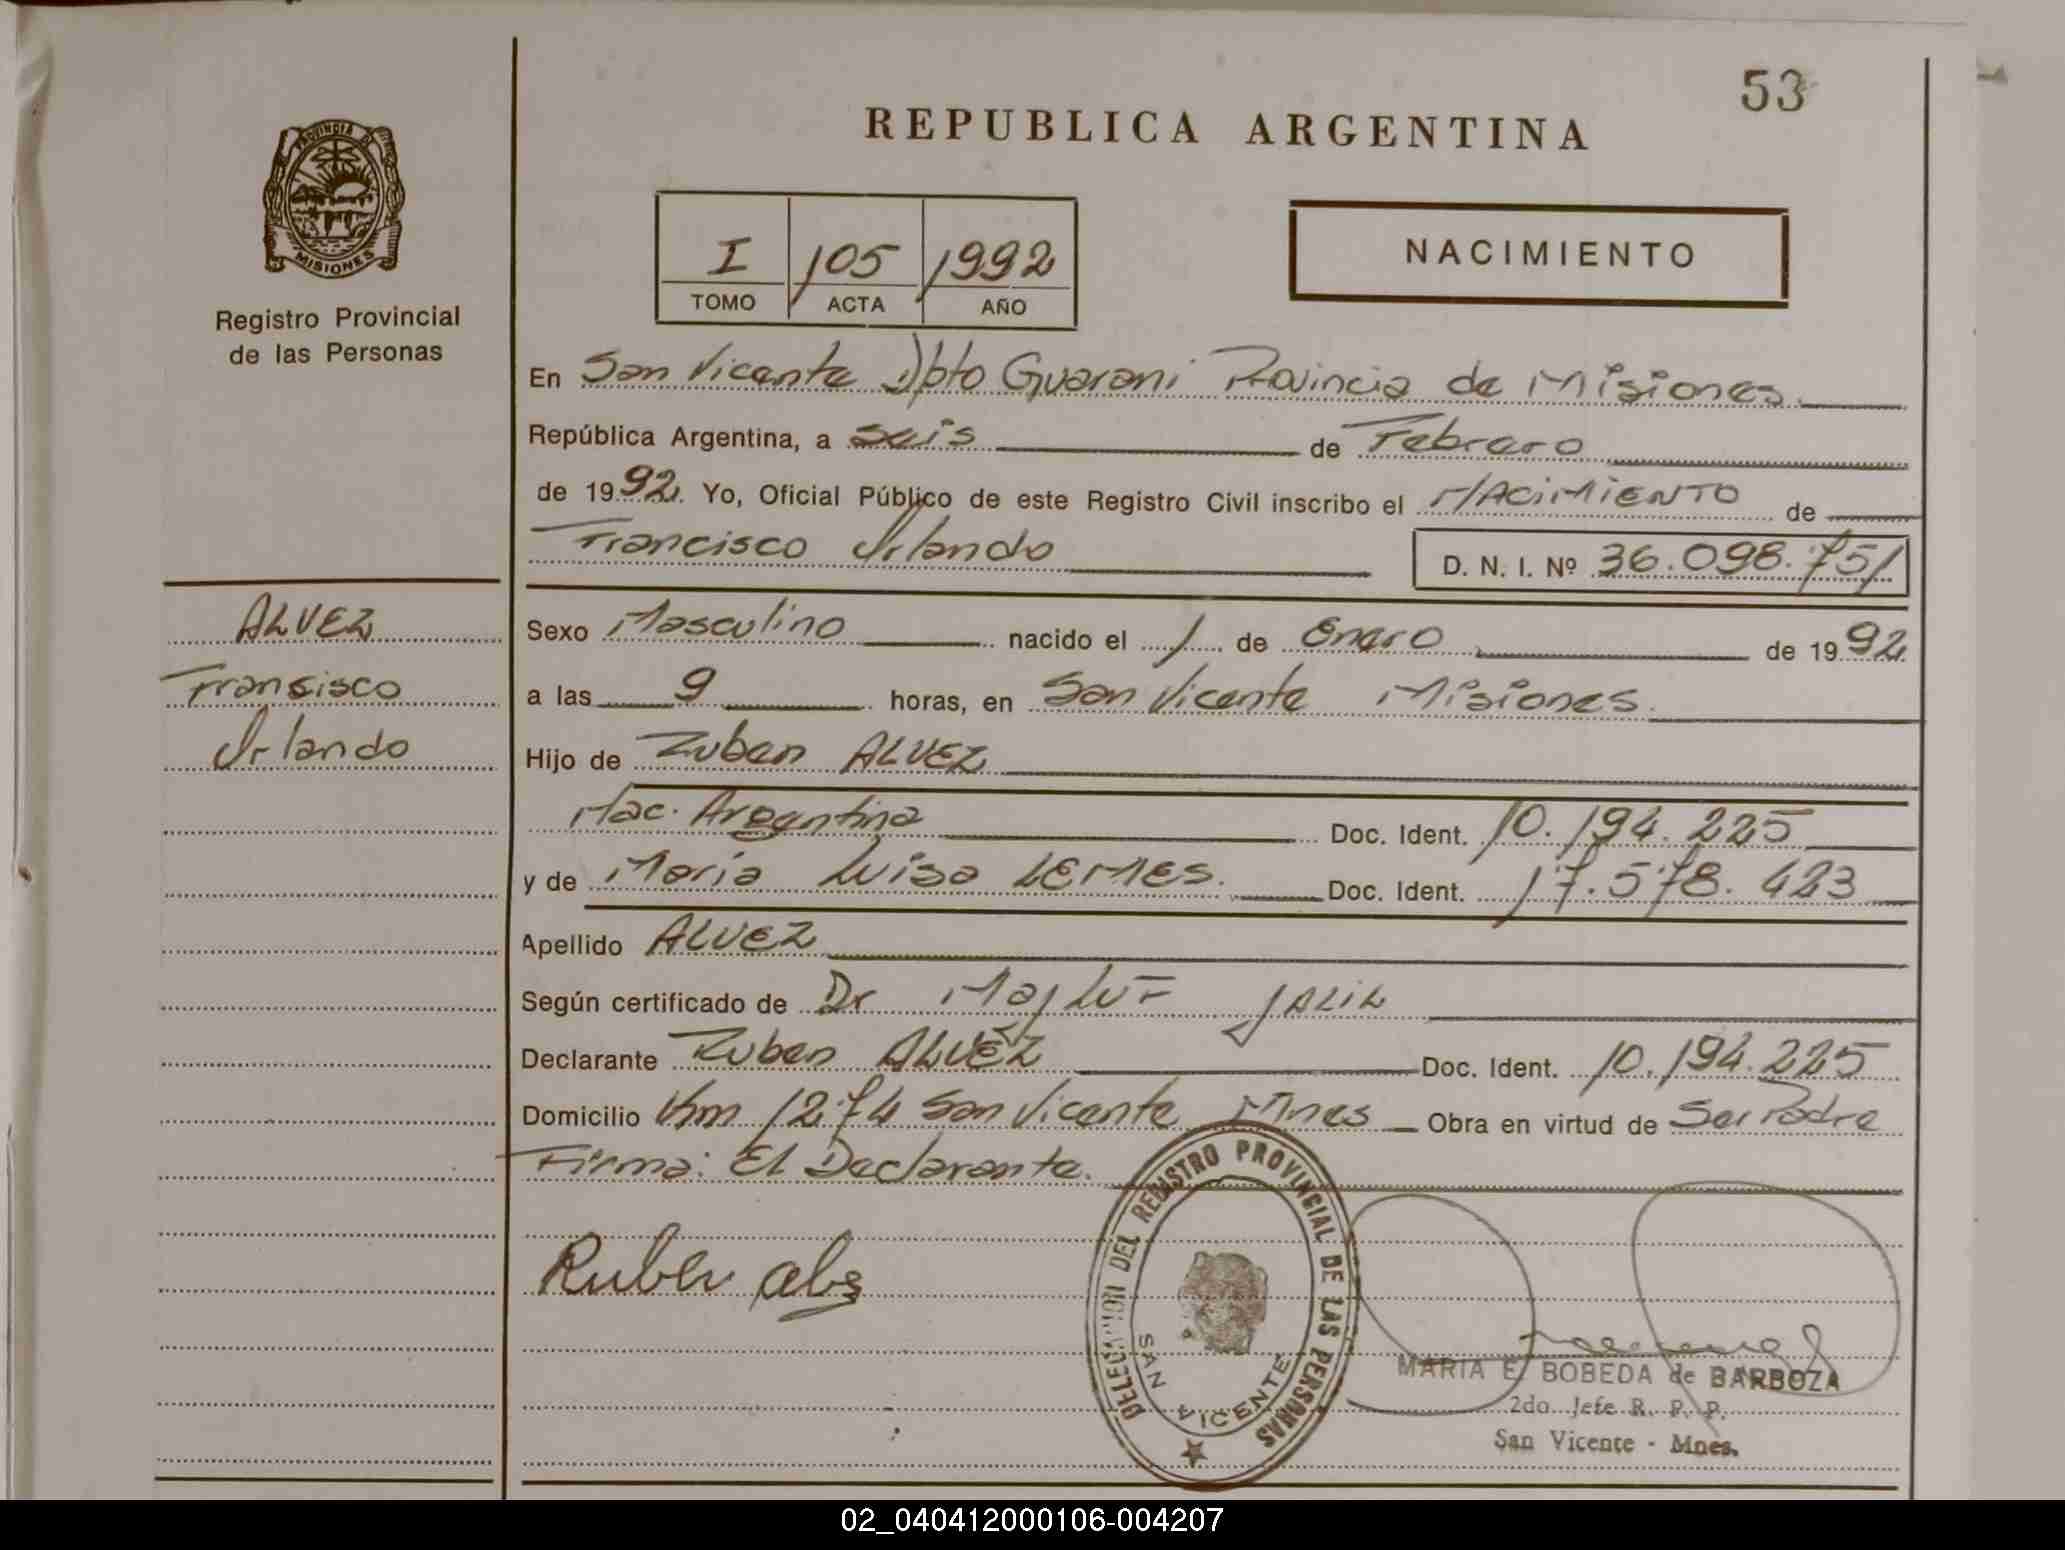 53
REPUBLICA ARGENTINA
PROVINCIA DE
MISIONES
Registro Provincial
de las Personas
I 105 1992
TOMO ACTA AÑO
NACIMIENTO
En San Vicente Dpto Guarani Provincia de Misiones.
República Argentina, a seis de Febrero
de 1992. Yo, Oficial Público de este Registro Civil inscribo el NACIMIENTO de
Francisco Orlando D. N. I. Nº 36.098.751
ALVEZ
Fransisco
Orlando
Sexo Masculino nacido el 1 de Enero de 1992
a las 9 horas, en San Vicente Misiones.
Hijo de Ruben ALVEZ
Nac. Argentina Doc. Ident. 10.194.225
y de Maria Luisa LEMES. Doc. Ident. 17.578.423
Apellido ALVEZ
Según certificado de Dr MajLUF JALIL
Declarante Ruben ALVEZ Doc. Ident. 10.194.225
Domicilio Km 1274 San Vicente Mnes Obra en virtud de Ser Padre
Firma: El Declarante.
Ruben
DELEGACION DEL REGISTRO PROVINCIAL DE LAS PERSONAS
SAN VICENTE
MARIA E. BOBEDA de BARBOZA
2do Jefe R. P. P.
San Vicente - Mnes.
02_040412000106-004207